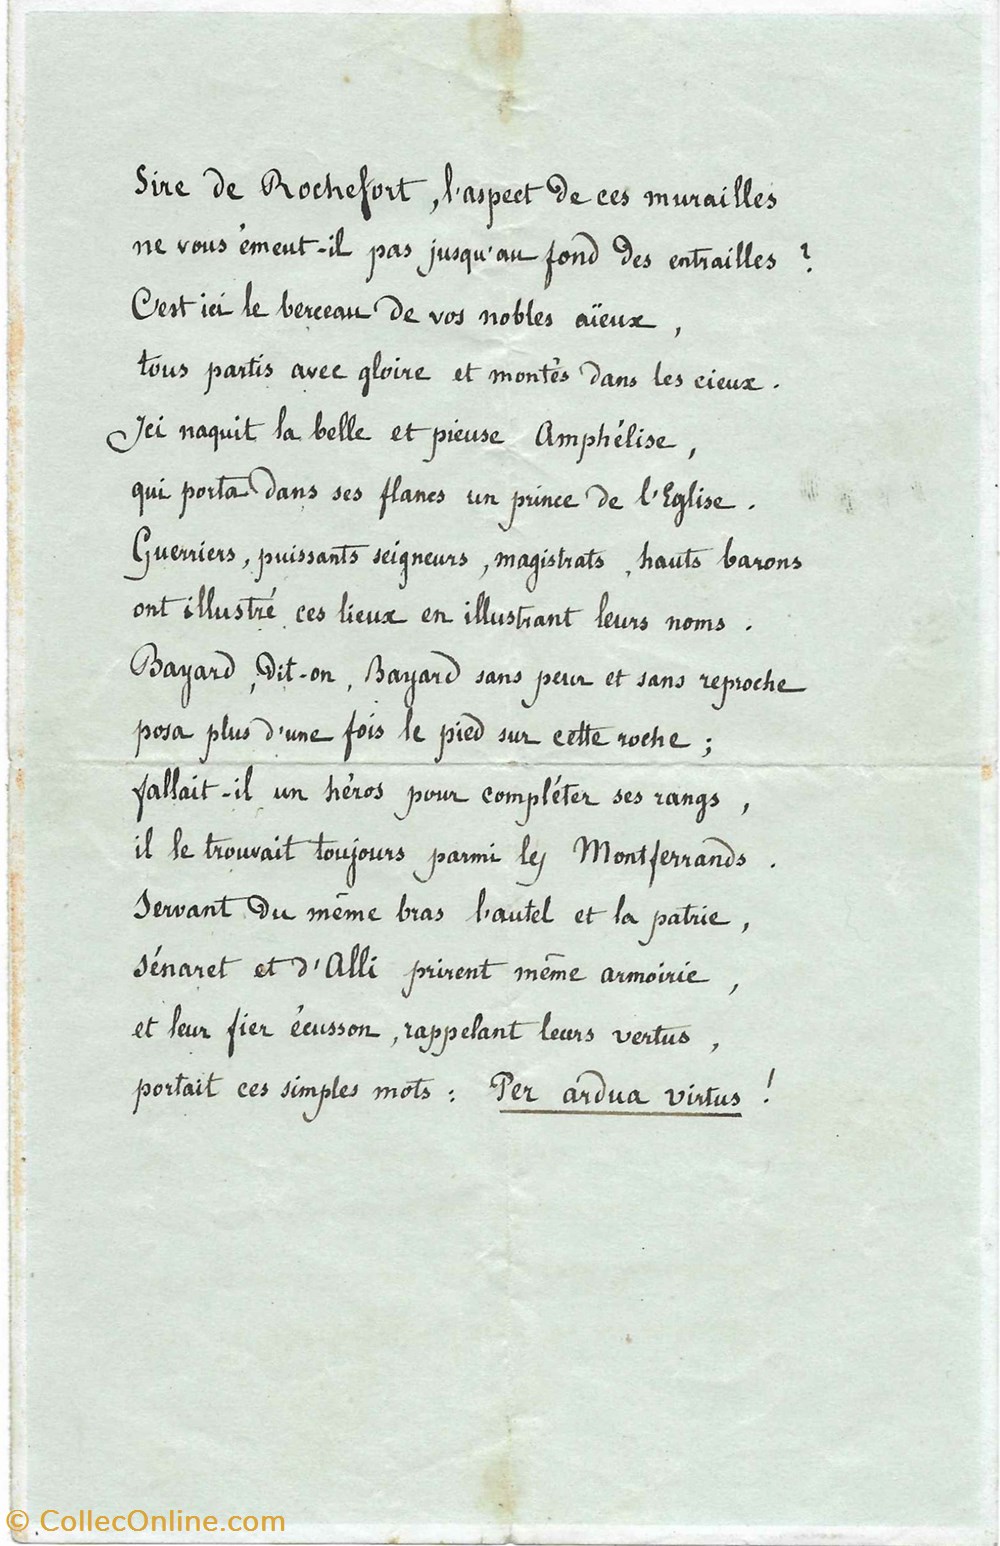 Sire de Rochefort, l'aspect de ces murailles
ne vous émeut-il pas jusqu'au fond des entrailles ?
C'est ici le berceau de vos nobles aïeux,
tous partis avec gloire et montés dans les cieux.
Ici naquit la belle et pieuse Amphélise,
qui porta dans ses flancs un prince de l'Eglise.
Guerriers, puissants seigneurs, magistrats, hauts barons
ont illustré ces lieux en illustrant leurs noms.
Bayard, dit-on, Bayard sans peur et sans reproche
posa plus d'une fois le pied sur cette roche ;
fallait-il un héros pour compléter ses rangs,
il le trouvait toujours parmi les Montferrands.
Servant du même bras l'autel et la patrie,
Sénaret et d'Alli prirent même armoirie,
et leur fier écusson, rappelant leurs vertus,
portait ces simples mots : Per ardua virtus !
© CollecOnline.com